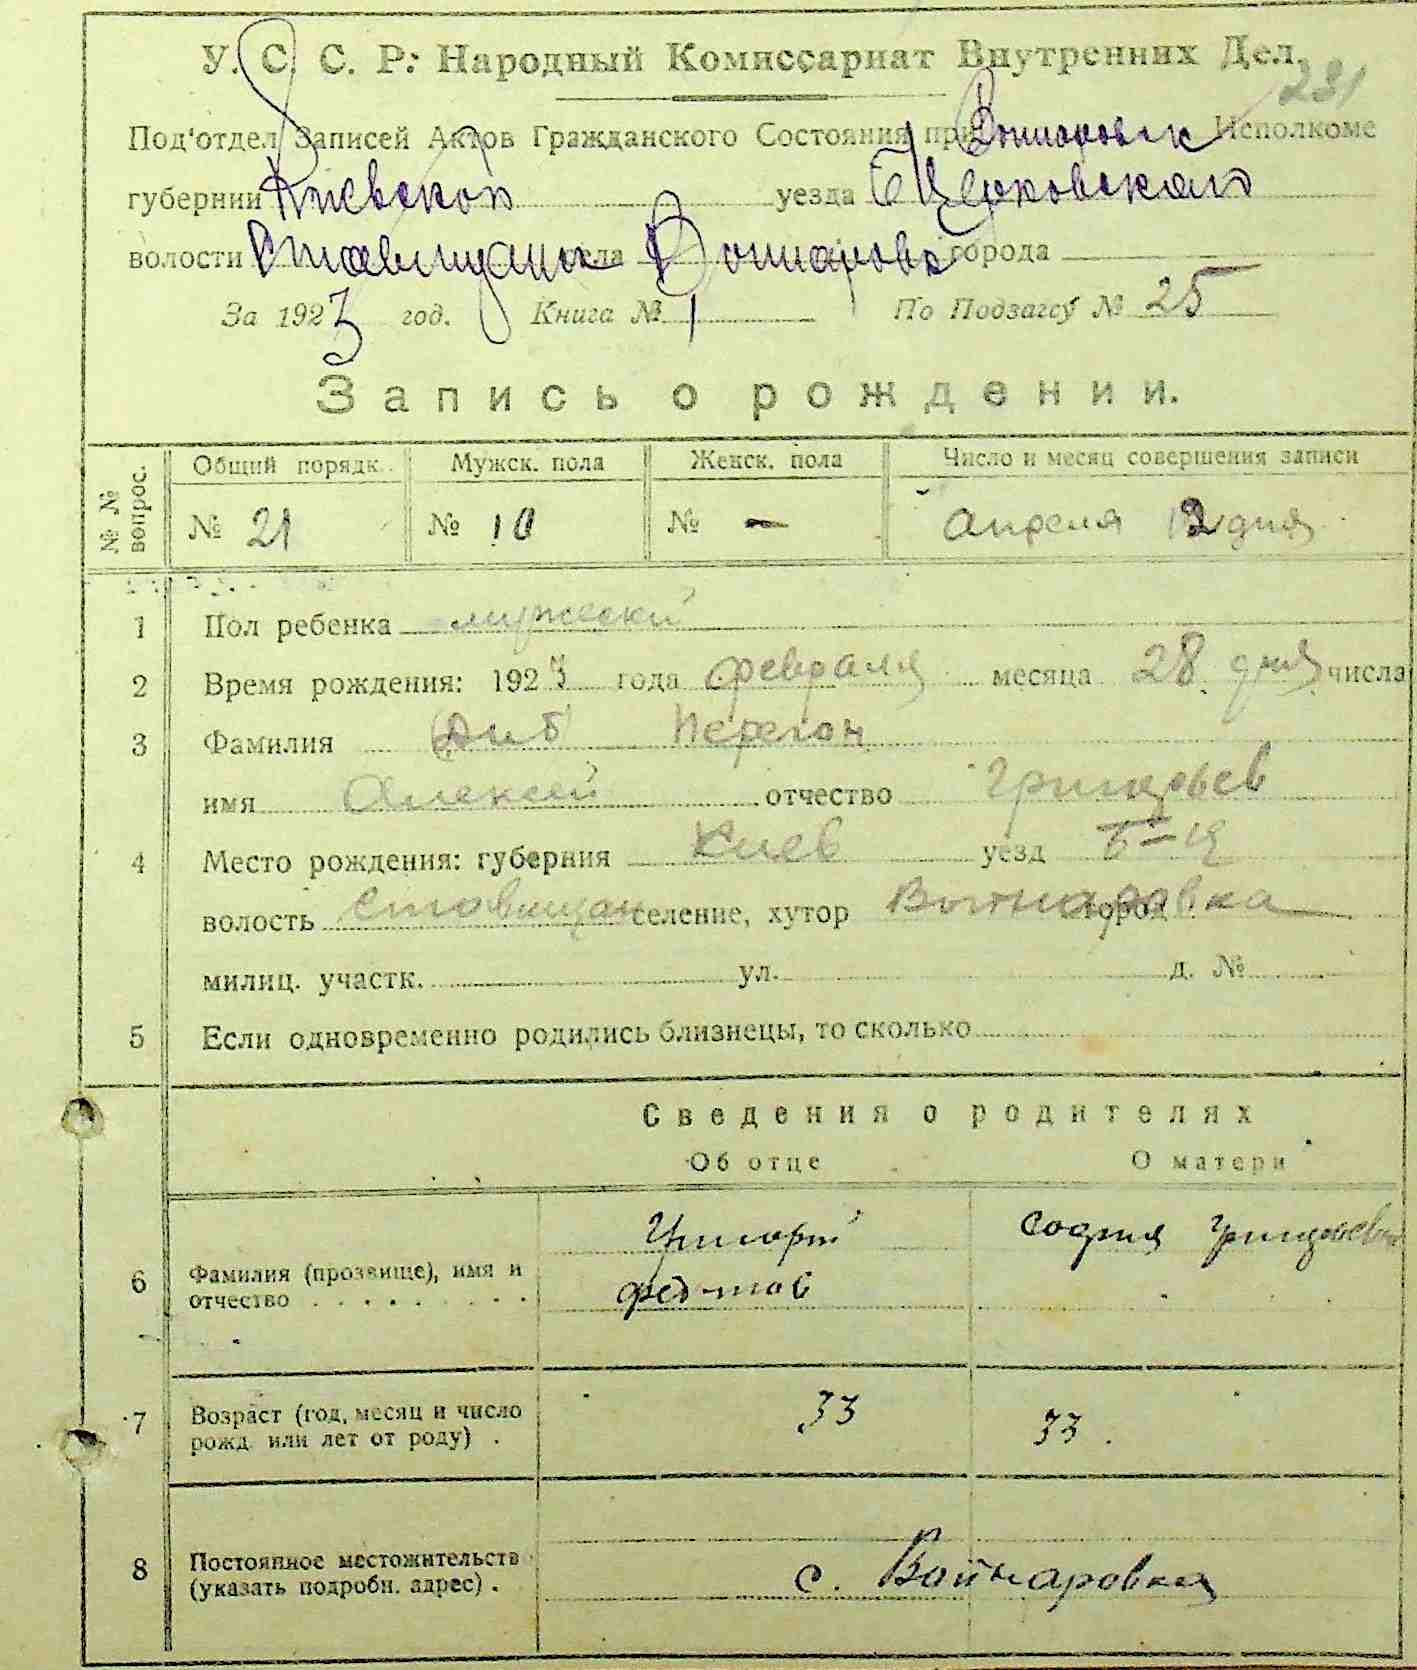 У. С. С. Р: Народный Комиссариат Внутренних Дел.
231
Под'отдел Записей Актов Гражданского Состояния при Исполкоме
губернии Киевской уезда Б Церковского
волости села города
За 1923 год. Книга № 1 По Подзагсу № 25
Запись о рождении.
№ № вопрос.
Общий порядк. Мужск. пола Женск. пола Число и месяц совершения записи
№ 21 № 10 № — Апреля 12 дня
1 Пол ребенка мужеский
2 Время рождения: 1923 года февраля месяца 28 дня числа
3 Фамилия Перегон
имя Алексей отчество Григорьев
4 Место рождения: губерния Киев уезд Б-Ц
волость Ставищан селение, хутор город
милиц. участк. ул. д. №
5 Если одновременно родились близнецы, то сколько
Сведения о родителях
Об отце О матери
Григорий София
6 Фамилия (прозвище), имя и
отчество . . . . . . . . .
7 Возраст (год, месяц и число 33 33.
рожд. или лет от роду) .
8 Постоянное местожительств
(указать подробн. адрес) . с. Войнаровка